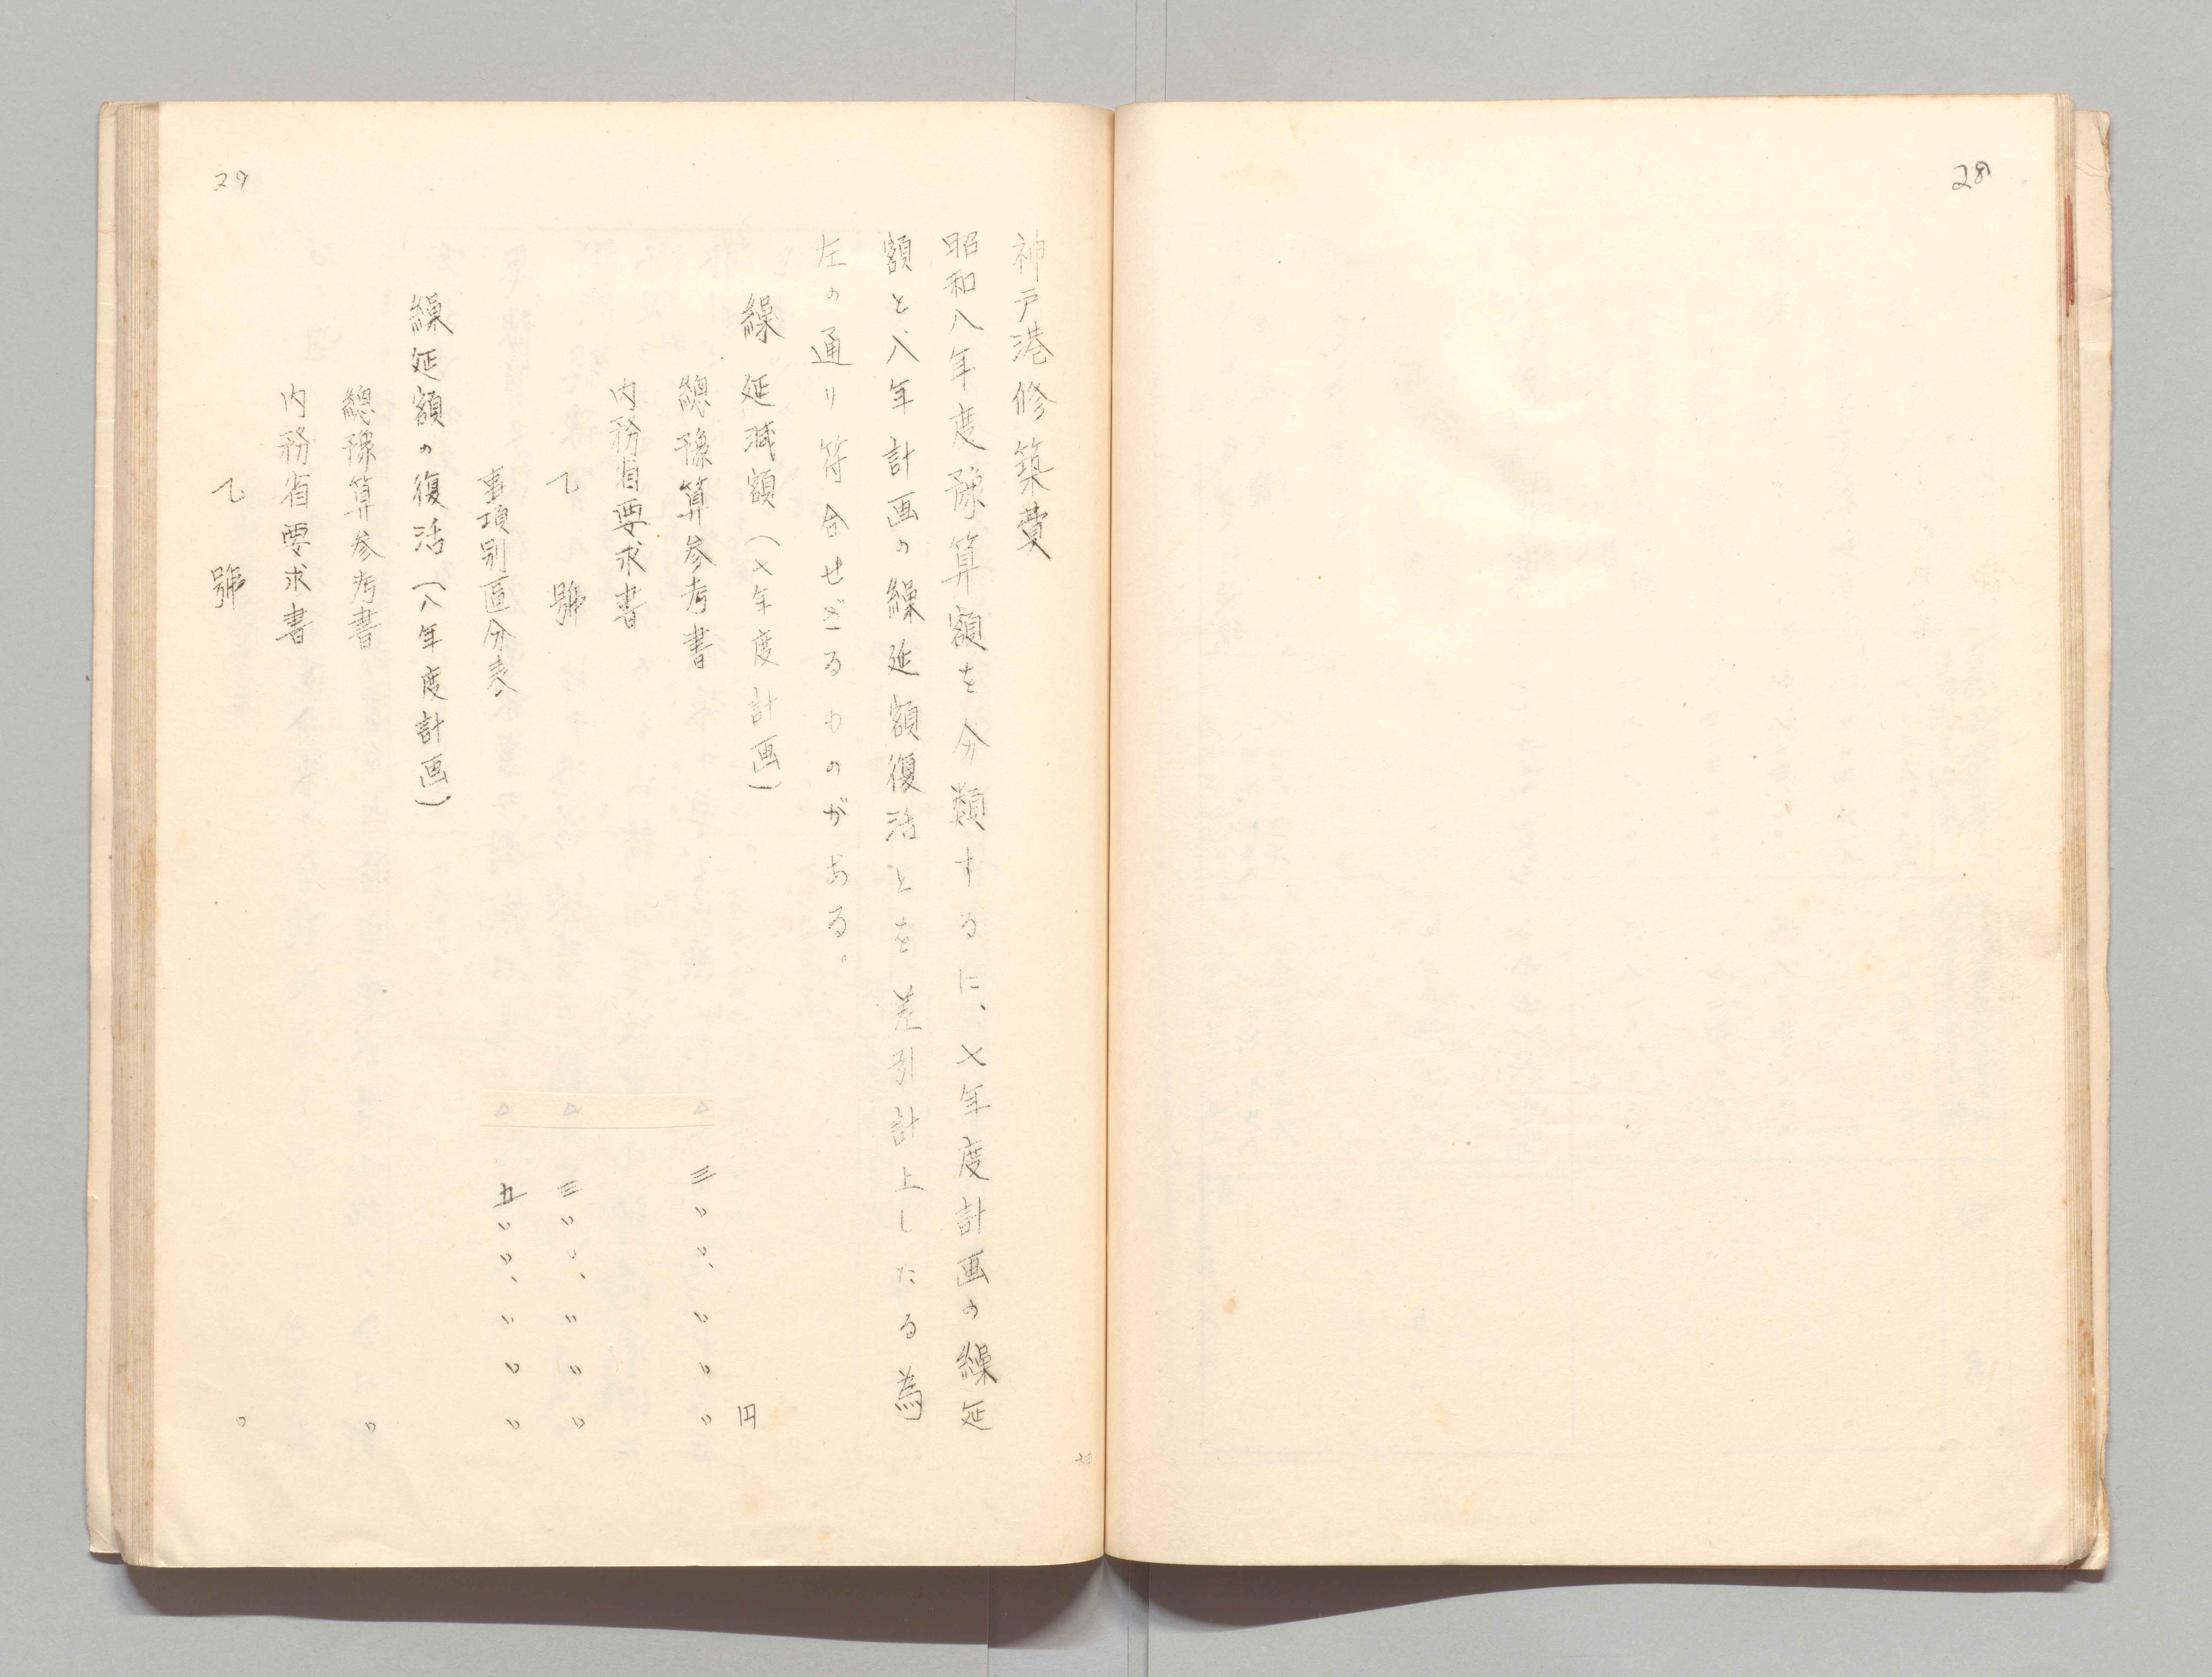 28
29
神戸港修築費
昭和八年度豫算額を分類するに、七年度計画の繰延
額と八年計画の繰延額復活とを差引計上したる為
左の通り符合せざるものがある。
繰延減額（七年度計画）
円
總豫算参考書 △三〇〇、〇〇〇
内務省要求書
乙號 △三〇〇、〇〇〇
事項別区分表 △五〇〇、〇〇〇
繰延額の復活（八年度計画）
總豫算参考書 〇
内務省要求書
乙號 〇